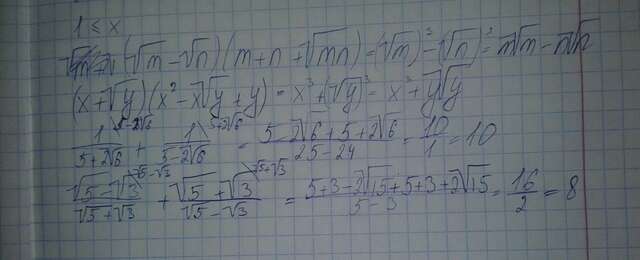 1 ≤ x
(√m - √n)(m + n + √mn) = (√m)³ - (√n)³ = m√m - n√n
(x + √y)(x² - x√y + y) = x³ + (√y)³ = x³ + y√y
1/(5+2√6) \5-2√6 + 1/(5-2√6) \5+2√6 = (5 - 2√6 + 5 + 2√6)/(25 - 24) = 10/1 = 10
(√5 - √3)/(√5 + √3) \√5-√3 + (√5 + √3)/(√5 - √3) \√5+√3 = (5 + 3 - 2√15 + 5 + 3 + 2√15)/(5 - 3) = 16/2 = 8